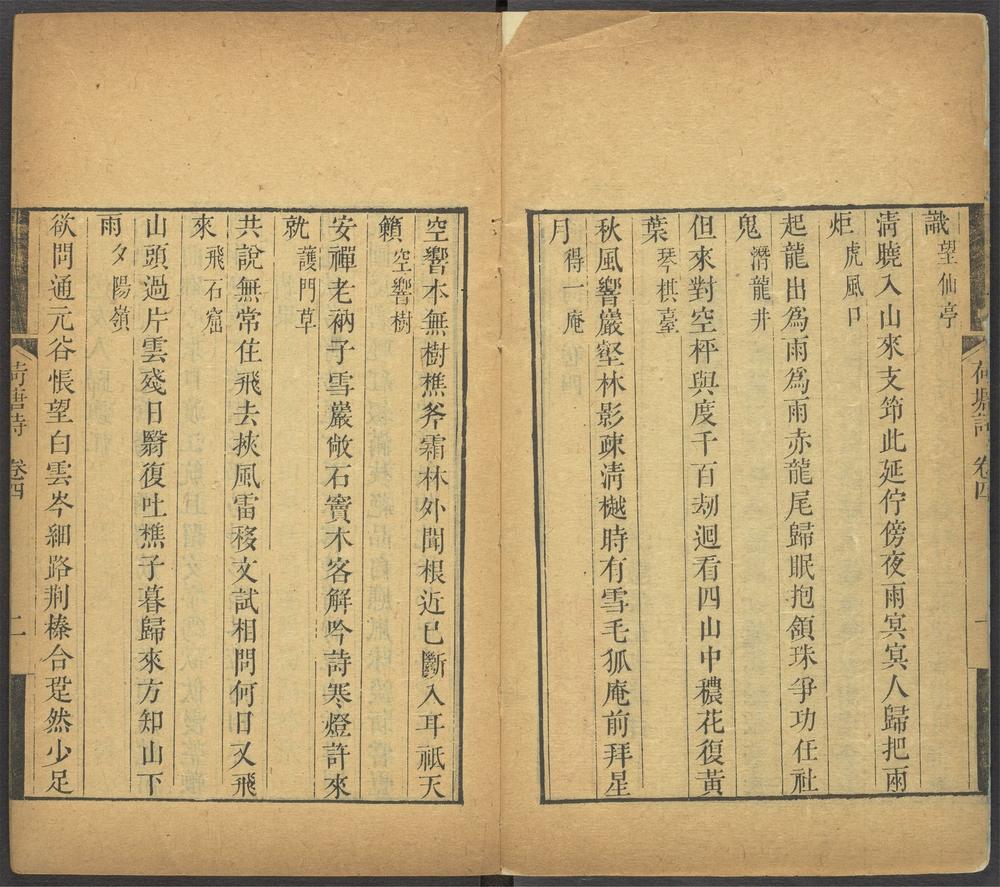 識 望仙亭
清曉入山來支笻此延佇傍夜雨冥冥人歸把兩
炬 虎風口
起龍出爲雨爲雨赤龍尾歸眠抱頷珠爭功任社
鬼 潛龍井
但來對空枰與度千百刼迴看四山中穠花復黃
葉 琴棋臺
秋風響巖壑林影疎清樾時有雪毛狐庵前拜星
月 得一庵
荷塘詩 卷四 一
空響本無樹樵斧霜林外聞根近已斷入耳祇天
籟 空響樹
安禪老衲子雪巖敞石竇木客解吟詩寒燈許來
就 護門草
共說無常住飛去挾風雷移文試相問何日又飛
來 飛石窟
山頭過片雲殘日翳復吐樵子暮歸來方知山下
雨 夕陽嶺
欲問通元谷悵望白雲岑細路荆榛合跫然少足
荷塘詩 卷四 二